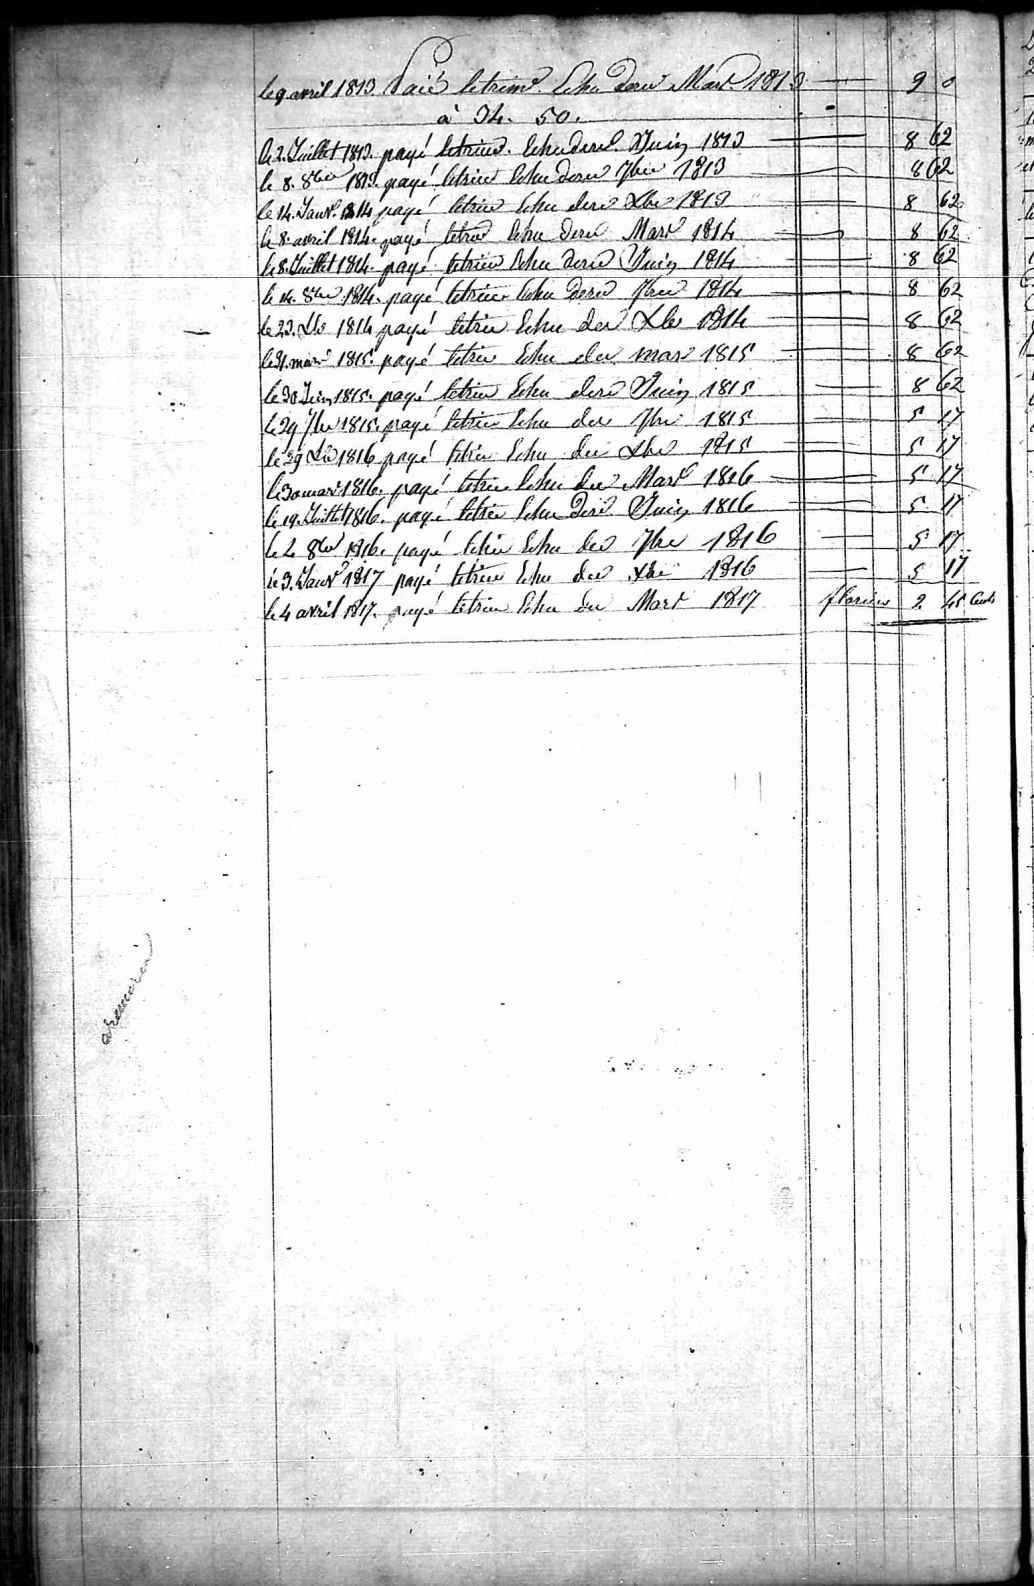 le 9 avril 1813. Paié letrimre. Echu dernr Mars 1813 9 0
à 34. 50.
le 2. Juillet 1813. payé letrimre. Echu dernr. Juin 1813 8 62
le 8. 8bre 1813. payé letrimre Echu dernr 7bre 1813 8 62
le 14. Janvr. 1814 payé letrimre Echu dernr Xbre 1813 8 62
le 8. avril 1814. payé letrimre Echu dernr Mars 1814 8 62
le 8. Juillet 1814. payé letrimre Echu dernr Juin 1814 8 62
le 14. 8bre 1814. payé letrimre Echu dernr 7bre 1814 8 62
le 23. Xbre 1814 payé letrimre Echu der Xbre 1814 8 62
le 31. mars 1815. payé letrimre Echu der mars 1815 8 62
le 30 Juin 1815. payé letrimre Echu dernr Juin 1815 8 62
le 29 7bre 1815. payé letrimre Echu der 7bre 1815 5 17
le 29 Xbre 1816 payé letrimre Echu der Xbre 1815 5 17
le 30 mars 1816. payé letrimre Echu der Mars 1816 5 17
le 19. Juillet 1816. payé letrimre Echu dernr Juin 1816 5 17
le 2 8bre 1816. payé letrimre Echu der 7bre 1816 5 17
le 3. Janvr 1817 payé letrimre Echu der Xbre 1816 5 17
le 4 avril 1817. payé letrimre Echu der Mars 1817 florins 2. 45 Cents